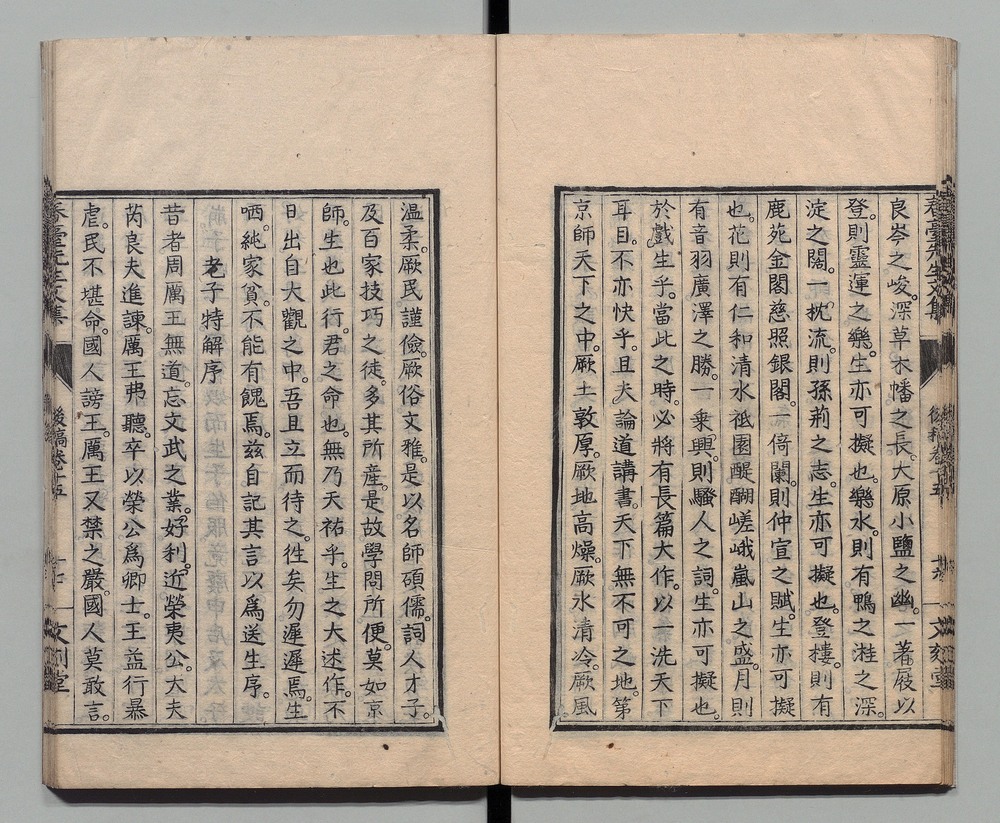 良岑之峻。深草木幡之長。大原小鹽之幽。一著屐以
登。則靈運之樂。生亦可擬也。樂水。則有鴨之湰之深。
淀之闊。一枕流。則孫荊之志。生亦可擬也。登樓。則有
鹿苑金閣慈照銀閣。一倚闌。則仲宣之賦。生亦可擬
也。花則有仁和清水祗園醍醐嵯峨嵐山之盛。月則
有音羽廣澤之勝。一乘興。則騷人之詞。生亦可擬也。
於戲生乎。當此之時。必將有長篇大作。以一洗天下
耳目。不亦快乎。且夫論道講書。天下無不可之地。第
京師天下之中。厥土敦厚。厥地高燥。厥水清冷。厥風
溫柔。厥民謹儉。厥俗文雅。是以名師碩儒。詞人才子。
及百家技巧之徒。多其所産。是故學問所便。莫如京
師。生也此行。君之命也。無乃天祐乎。生之大述作。不
日出自大觀之中。吾且立而待之。徃矣勿遲遲焉。生
哂。純家貧。不能有餽焉。茲自記其言以爲送生序。
老子特解序
昔者周厲王無道。忘文武之業。好利。近榮夷公。大夫
芮良夫進諫。厲王弗聽。卒以榮公爲卿士。王益行暴
虐。民不堪命。國人謗王。厲王又禁之嚴。國人莫敢言。
春臺先生文集
後稿卷十五